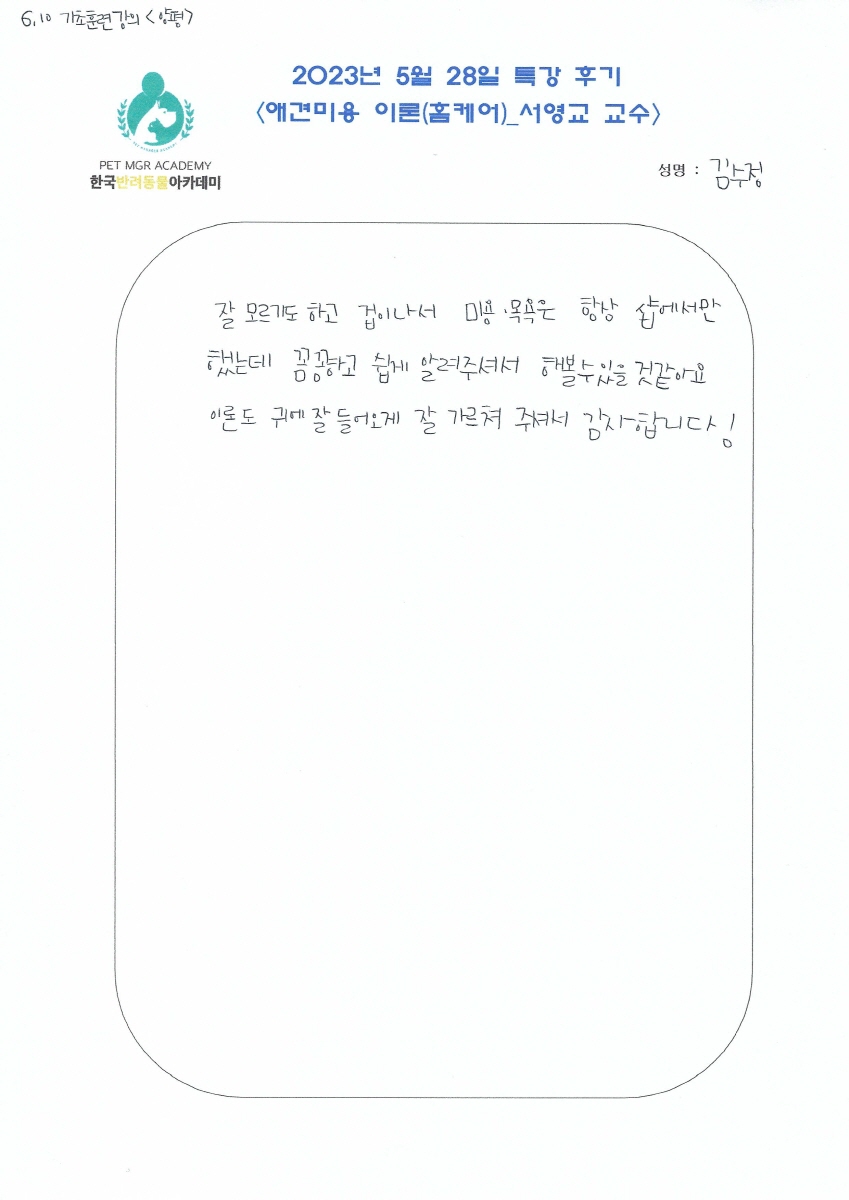 6.10 기초훈련강의 <양평>
2023년 5월 28일 특강 후기
<애견미용 이론(홈케어)_서영교 교수>
PET MGR ACADEMY
한국반려동물아카데미
성명 : 김수정
잘 모르기도 하고 겁이나서 미용·목욕은 항상 샵에서만
했는데 꼼꼼하고 쉽게 알려주셔서 해볼수있을 것같아요
이론도 귀에 잘 들어오게 잘 가르쳐 주셔서 감사합니다!